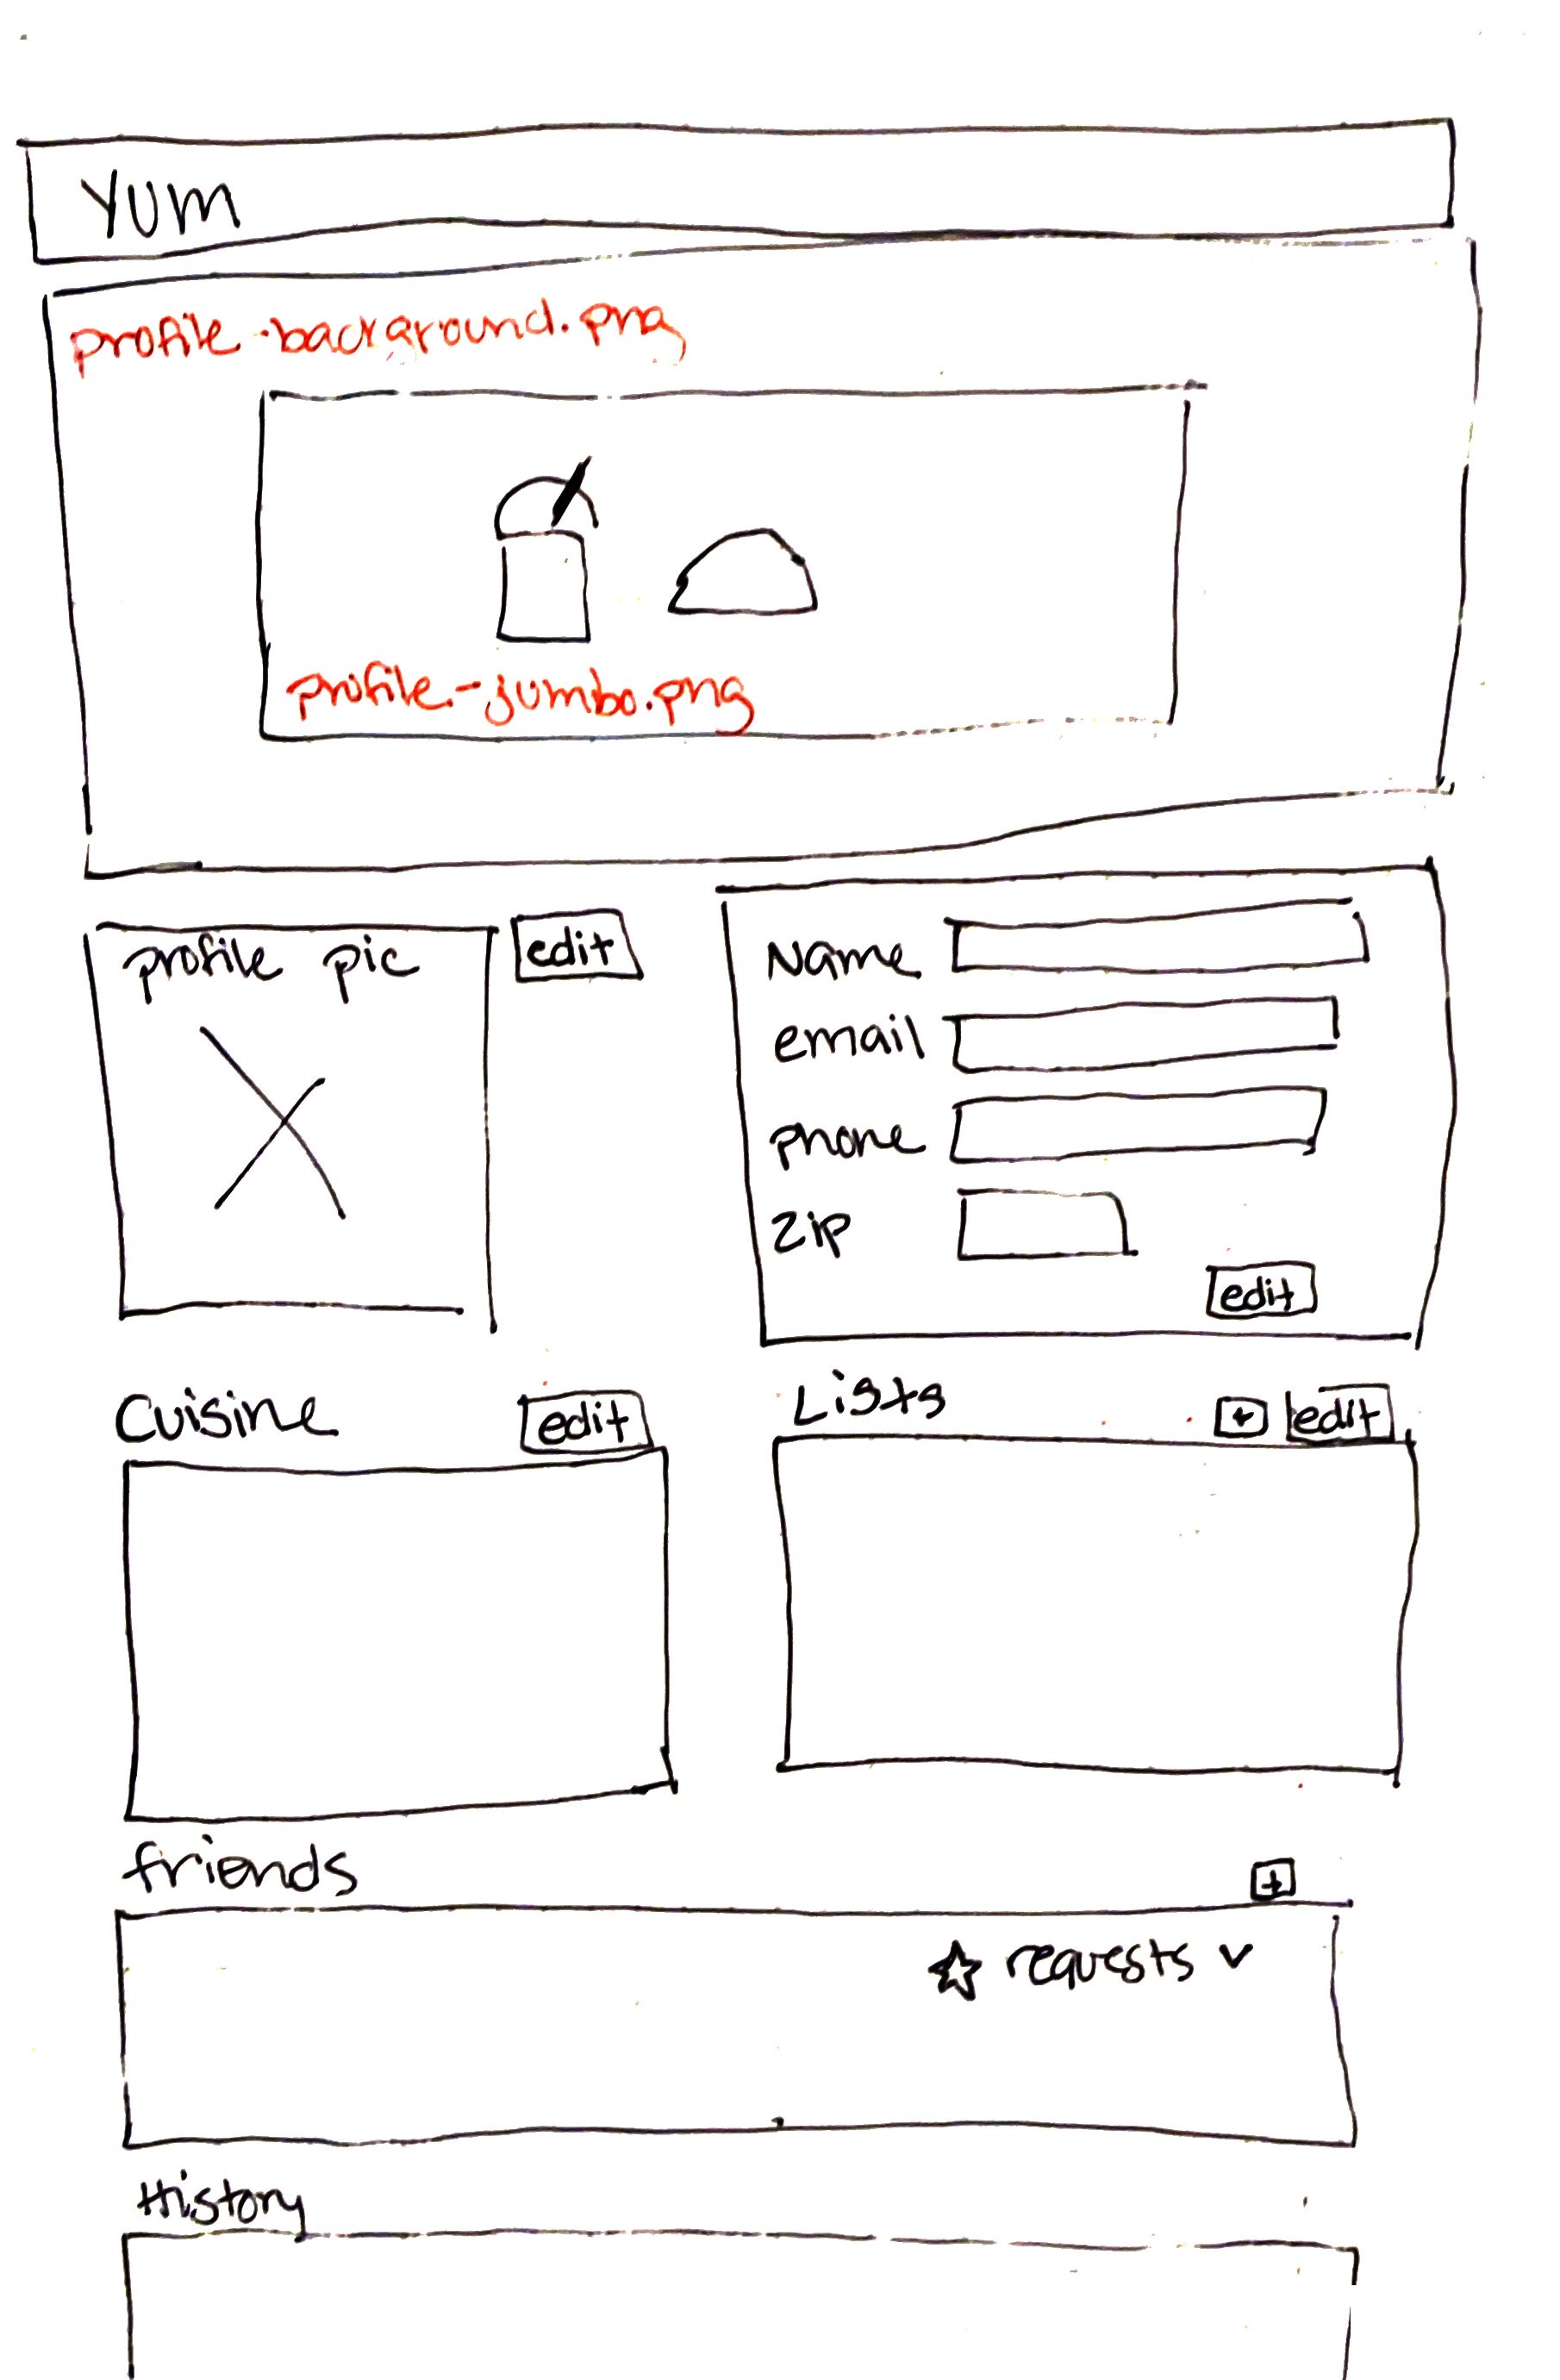 YUM
profile-background.png
profile-jumbo.png
profile pic
edit
Name
email
phone
zip
edit
Cuisine
edit
Lists
+ edit
friends
+
☆ requests v
History